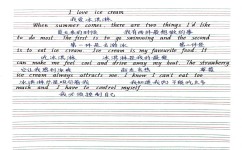 I love ice cream
我爱冰淇淋
When summer comes, there are two things I'd like
夏天来的时候 我有两件最想做的事
to do most. The first is to go swimming and the second
第一件是去游泳 第二件
is to eat ice cream. Ice cream is my favourite food. It
吃冰淇淋 冰淇淋是我的最爱
can make me feel cool and drive away my heat. The strawberry
它让我感到凉爽 草莓
ice cream always attracts me. I know I can't eat too
冰淇淋总是吸引着我 我知道我不能吃太多
much and I have to control myself
我必须控制自己